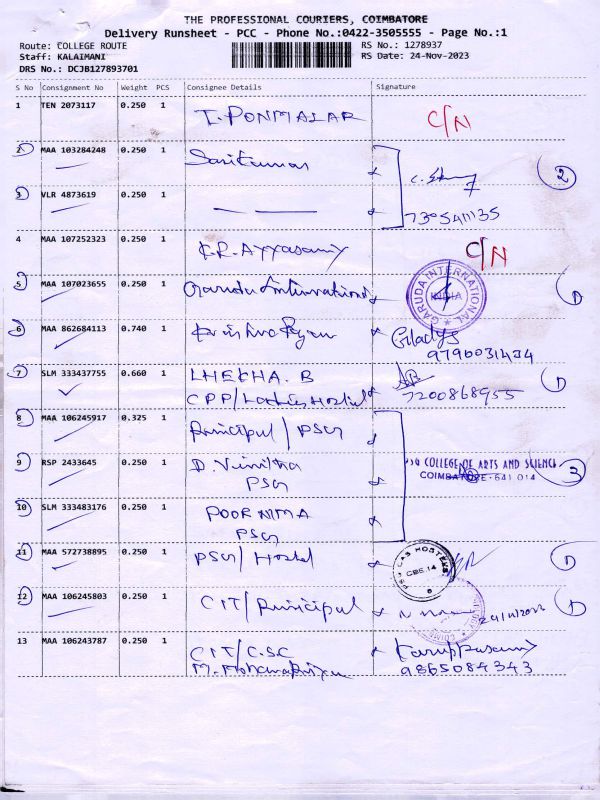 THE PROFESSIONAL COURIERS, COIMBATORE
Delivery Runsheet - PCC - Phone No.:0422-3505555 - Page No.:1
Route: COLLEGE ROUTE
RS No.: 1278937
Staff: KALAIMANI
RS Date: 24-Nov-2023
DRS No.: DCJB127893701
S No Consignment No Weight PCS Consignee Details Signature
1 TEN 2073117 0.250 1 T. PONMALAR C/N
2 MAA 103284248 0.250 1 Sasikumar 2
3 VLR 4873619 0.250 1 7305411135
4 MAA 107252323 0.250 1 K.R. Ayyasamy C/N
5 MAA 107023655 0.250 1 Garuda International GARUDA INTERNATIONAL INDIA 1
6 MAA 862684113 0.740 1 Gladys
9796031434
7 SLM 333437755 0.660 1 LHEKHA. B 1
CPP/Ladies Hostel 7200868955
8 MAA 106245917 0.325 1 Principal / PSG
9 RSP 2433645 0.250 1 D. Vinitha PSG COLLEGE OF ARTS AND SCIENCE 3
PSG COIMBATORE - 641 014
10 SLM 333483176 0.250 1 POORNIMA
PSG
11 MAA 572738895 0.250 1 PSG / Hostel PSG CAS HOSTELS CBE.14 1
12 MAA 106245803 0.250 1 CIT / Principal 24/11/2023 1
13 MAA 106243787 0.250 1 CIT/C.SC Karuppasamy
9865084343